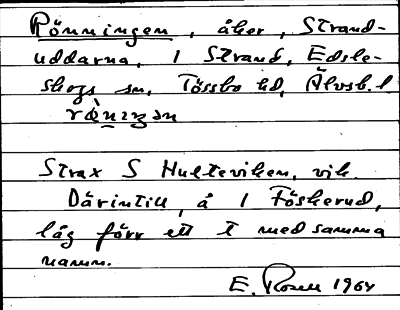 Rönningen, åker, Strand-
uddarna, 1 Strand, Edsle-
skogs sn, Tössbo hd, Älvsb. l
Strax S Hulteviken, vik.
Därintill, å 1 Föskerud,
låg förr ett t med samma
namn.
E. Rosell 1964